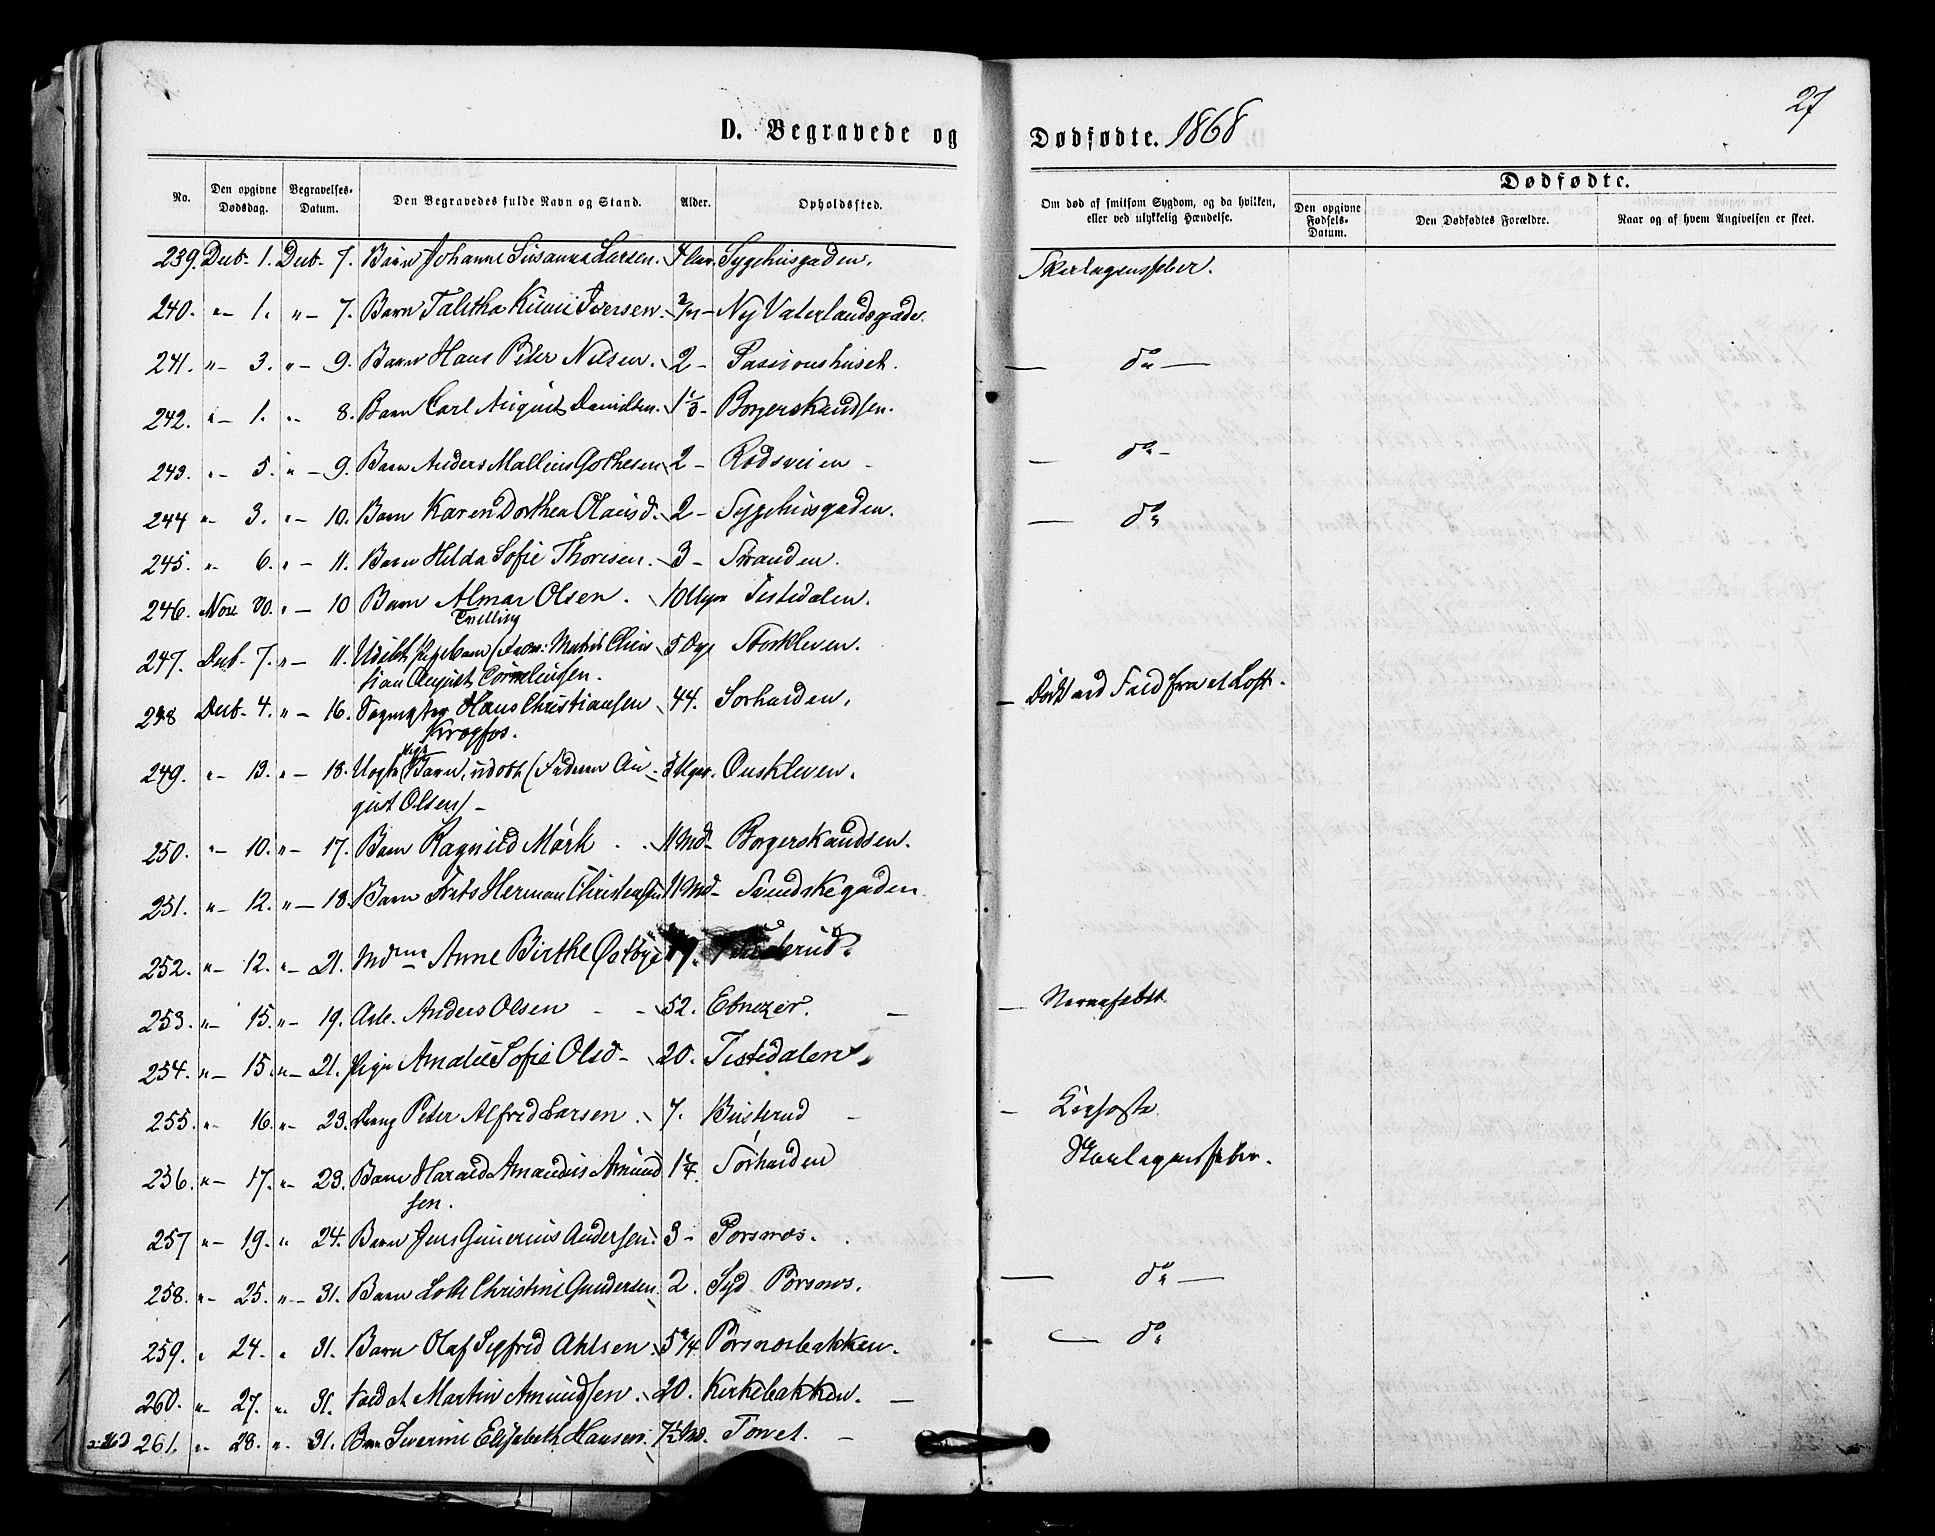 27
D. Begravede og Dødfødte. 1868
No.
Den opgivne Dødsdag.
Begravelses-Datum.
Den Begravedes fulde Navn og Stand.
Alder.
Opholdssted.
Om død af smitsom Sygdom, og da hvilken, eller ved ulykkelig Hændelse.
Dødfødte.
Den opgivne Fødsels-Datum.
Den Dødfødtes Forældre.
Naar og af hvem Angivelsen er skeet.
239. Decb. 1. Decb. 7. Barn Johanne Susanna Larsen. 4 Sygehusgaden. Skarlagensfeber.
240. " 1. " 7. Barn Talitha Kumi Iversen. Ny Vaterlandsgade.
241. " 3. " 9. Barn Hans Peter Nilsen. 2 - — do —
242. " 1. " 8. Barn Carl August Davidsen. 1 1/3 - Borgerskandsen.
243. " 5. " 9. Barn Anders Mallius Gothesen 2 - Rødsveien - — do -
244 " 3. " 10. Barn Karen Dorthea Olausd. 2 - Sygehusgaden. — do
245. " 6. " 11. Barn Hilda Sofie Thoresen. 3 - Stranden.
246. Nov. 20. " 10 Barn Almar Olsen. 10 Uger Tistedalen.
Tvilling
247. Decb. 7. " 11. Udøbt Pigebarn ( Chris 5 Dage Storkleven.
tian August Corneliussen.
248 Decb. 4. " 16. Hans Christiansen 44. Sørhalden. — Død ved Fald fra et Loft.
Kragfos.
249. " 13. " 18. Uægte Barn, udøbt (Faderen Au- 3 Uger. Ouskleven.
Pige
gust Olsen) -
250. " 10. " 17. Barn Ragnild Mørk 11 Md. Borgerskandsen.
251. " 12. " 18. Barn Herman Christensen 11 Md. Svendskegaden
252. " 12. " 21. Mdme Anne Birthe Østbye
253. " 15. " 19. Arb. Anders Olsen 52. Ebnezer. — Nervefeber
254. " 15. " 21. Pige Amalie Sofie Olsd. 20. Tistedalen
255. " 16. " 23. Dreng Peter Alfred Larsen. 7. Busterud — Kighoste
256. " 17. " 23. Barn Harald Amandus Amund 1 Sørhalden Skarlagensfeber.
sen.
257 " 19. " 24. Barn Jens Gunerius Andersen. 3 - Porsnæs.
258. " 25. " 31. Barn Lotte Christine Gundersen. 2. Syd Porsnæs. — do —
259. " 24. " 31. Barn Olaf Sigfred Ahlsen. 5 Porsnæsbakken. — do
260. " 27. " 31. Soldat Martin Amundsen. 20. Kirkebakken. —
261. " 28. " 31. Barn Severine Elisabeth Hansen. 7 1/2 Md. Torvet. -